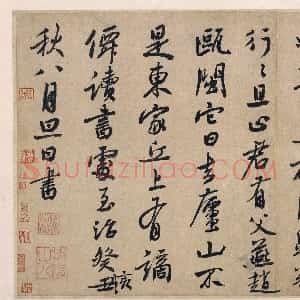 行〻且止君有父燕趙
甌閩它日去廬山不
是東家丘上有謫
僊讀書處至治癸亥
秋八月旦日書